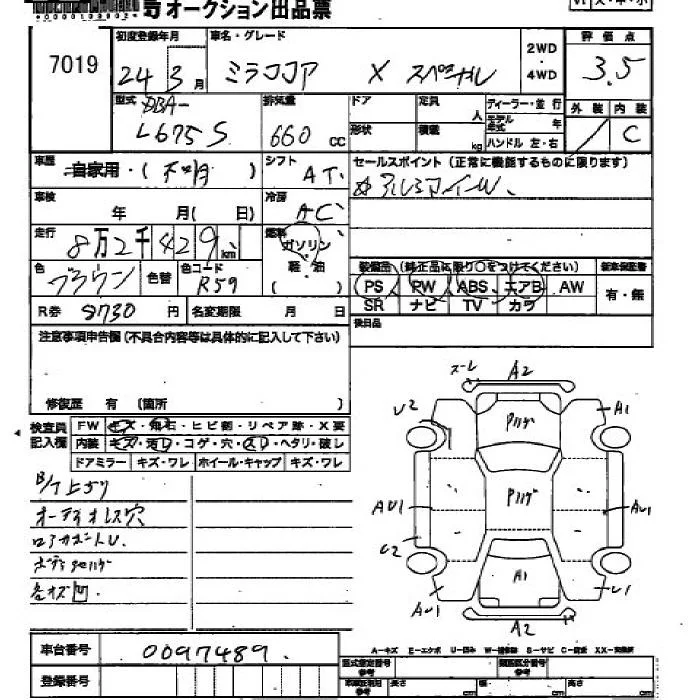 オークション出品票
7019
初度登録年月
24 3月
車名・グレード
ミラココア X スペシャル
2WD
4WD
評価点
3.5
型式 DBA-
L675S
排気量
660 cc
ドア
形状
定員 人
積載 kg
ディーラー・並行
モデル年式 年
ハンドル 左・右
外装 内装
C
車歴
自家用・( )
シフト
AT
セールスポイント(正常に機能するものに限ります)
車検
年 月( 日)
冷房
AC
走行
8万2千429km
燃料
ガソリン
軽・油
色
ブラウン
色替
色コード
R59
装備品(純正品に限り○をつけてください)
PS PW ABS エアB AW
SR ナビ TV カワ
新車保証書
有・無
R券 8730 円
名変期限 月 日
後日品
注意事項申告欄(不具合内容等は具体的に記入して下さい)
修復歴 有 (箇所 )
検査員記入欄
FW キズ・飛石・ヒビ割・リペア跡・X要
内装 キズ・汚レ・コゲ・穴・スレ・ヘタリ・破レ
ドアミラー キズ・ワレ ホイール・キャップ キズ・ワレ
オーディオレス穴
各小キズ凹
A2
U2
A1
AU1
AU1
U2
A1
AU1
U1
A2
車台番号 0097489
登録番号
A-キズ E-エクボ U-凹み W-補修跡 S-サビ C-腐食 XX-交換済
型式指定番号
類別区分番号
長さ cm 幅 cm 高さ cm